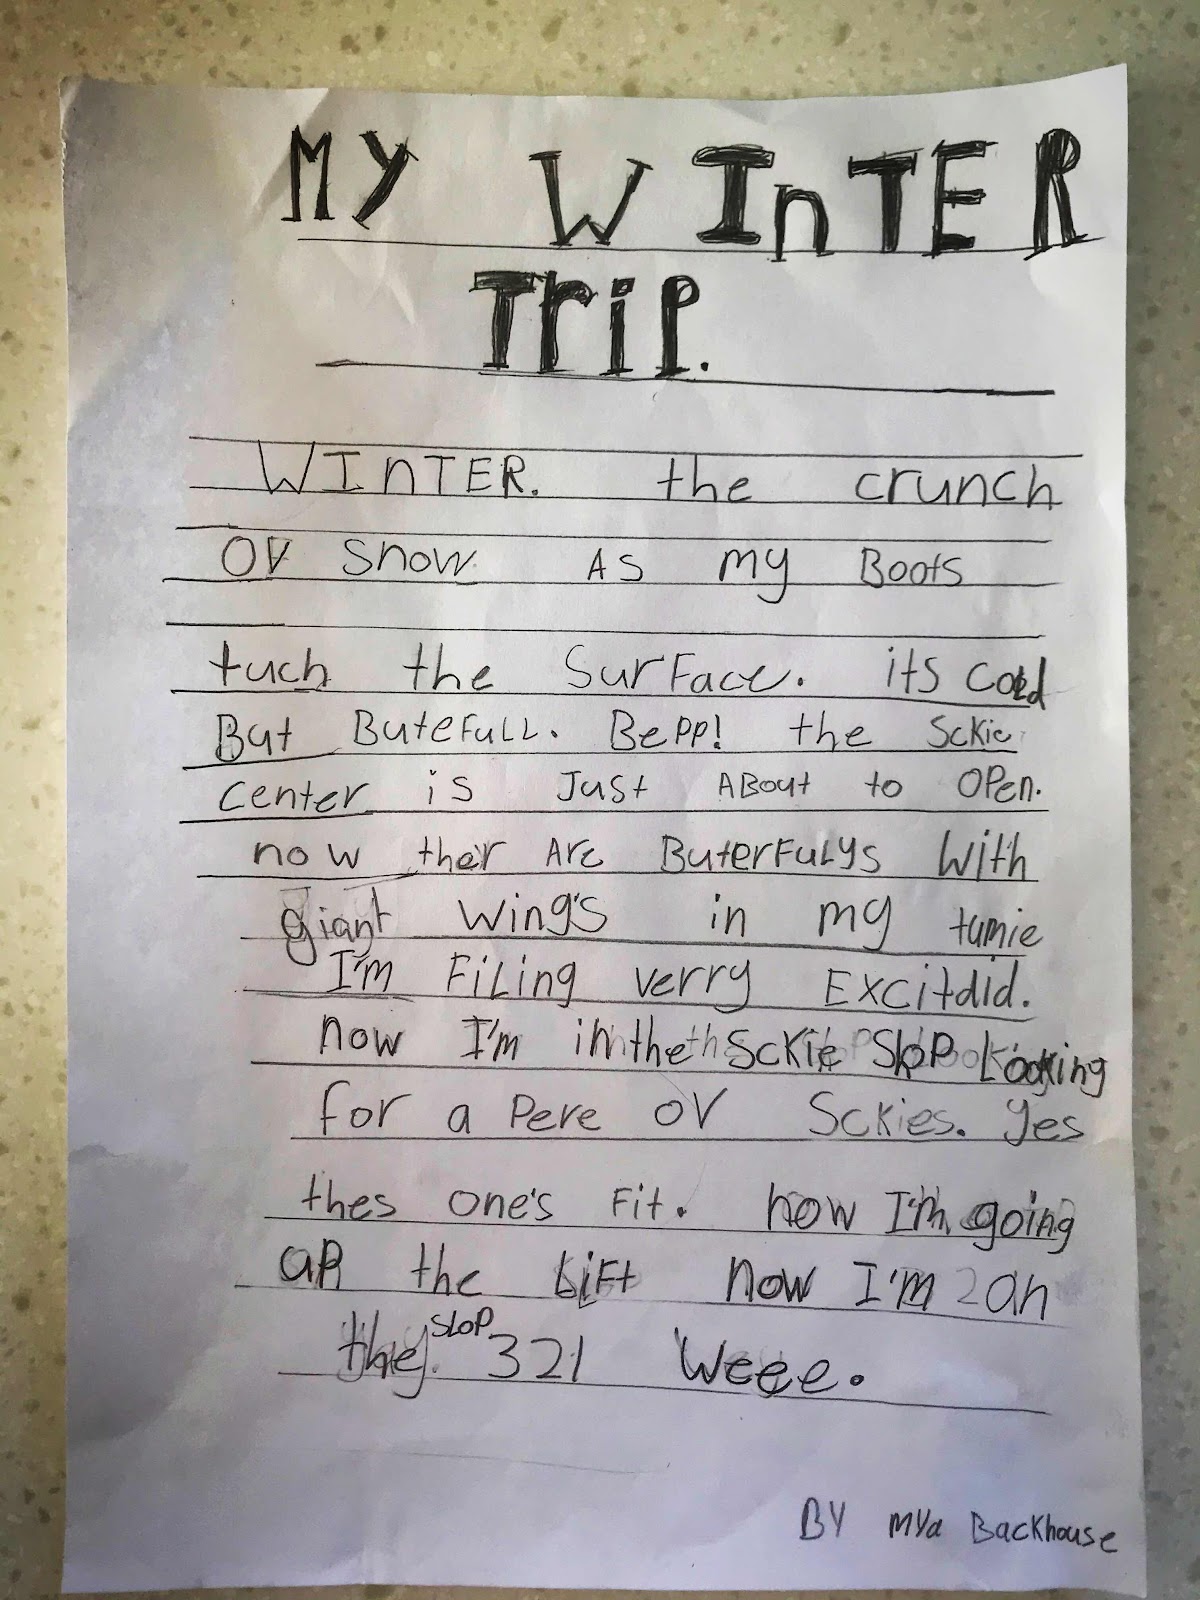 MY WInTER
TriP.
WInTER. the crunch
OV Snow As my Boots
tuch the SurFace. its cold
But ButeFuLL. BePP! the Sckie
center is Just ABout to OPen.
now ther Are ButerFuLys With
giant wing's in my tumie
I'm FiLing verry Excitdid.
now I'm in the Sckie ShoP Looking
for a Pere OV Sckies. yes
thes one's Fit. now I'm going
uP the LiFt now I'm on
the SLoP 321 Weee.
BY Mya Backhouse